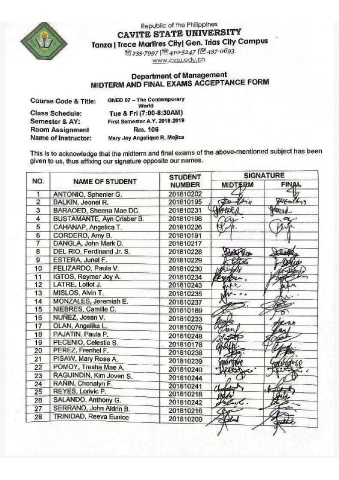 Republic of the Philippines
CAVITE STATE UNIVERSITY
Tanza | Trece Martires City| Gen. Trias City Campus
www.cvsu.edu.ph
Department of Management
MIDTERM AND FINAL EXAMS ACCEPTANCE FORM
Course Code & Title: GNED 07 – The Contemporary World
Class Schedule: Tue & Fri (7:00-8:30AM)
Semester & AY: First Semester A.Y. 2018-2019
Room Assignment Rm. 106
Name of Instructor: Mary Joy Angelique R. Mojica
This is to acknowledge that the midterm and final exams of the above-mentioned subject has been
given to us, thus affixing our signature opposite our names.
NO. NAME OF STUDENT STUDENT NUMBER SIGNATURE
MIDTERM FINAL
1 ANTONIO, G. 201810202
2 BALKIN, Jeonel R. 201810195
3 BARAOED, Sheena Mae DC. 201810231
4 BUSTAMANTE, Ayn Crisber B. 201810198
5 CAHANAP, Angelica T. 201810226
6 CORDERO, Amy B. 201810191
7 DANGLA, John Mark D. 201810217
8 DEL RIO, Ferdinand Jr. S. 201810228
9 ESTERA, Junel F. 201810229
10 FELIZARDO, Paula V. 201810230
11 IGTOS, Reymor Joy A. 201810234
12 LATRE, Loliot J. 201810243
13 MISLOS, Alvin T. 201810235
14 MONZALES, Jeremiah E. 201810237
15 NIEBRES, Camille C. 201810189
16 NUÑEZ, Josan V. 201810233
17 OLAN, Angelika L. 201810076
18 PAJATIN, Paula P. 201810248
19 PECENIO, Celestia S. 201810178
20 PEREZ, Frenhel F. 201810238
21 PISAW, Mary Rose A. 201810239
22 POMOY, Tresha Mae A. 201810240
23 RAGUINDIN, Kim Joven S. 201810244
24 RAÑIN, Chonalyn F. 201810241
25 REYES, Lorivic P. 201810218
26 SALANDO, Anthony G. 201810242
27 SERRANO, John Aldrin B. 201810216
28 TRINIDAD, Reeva Eunice 201810200